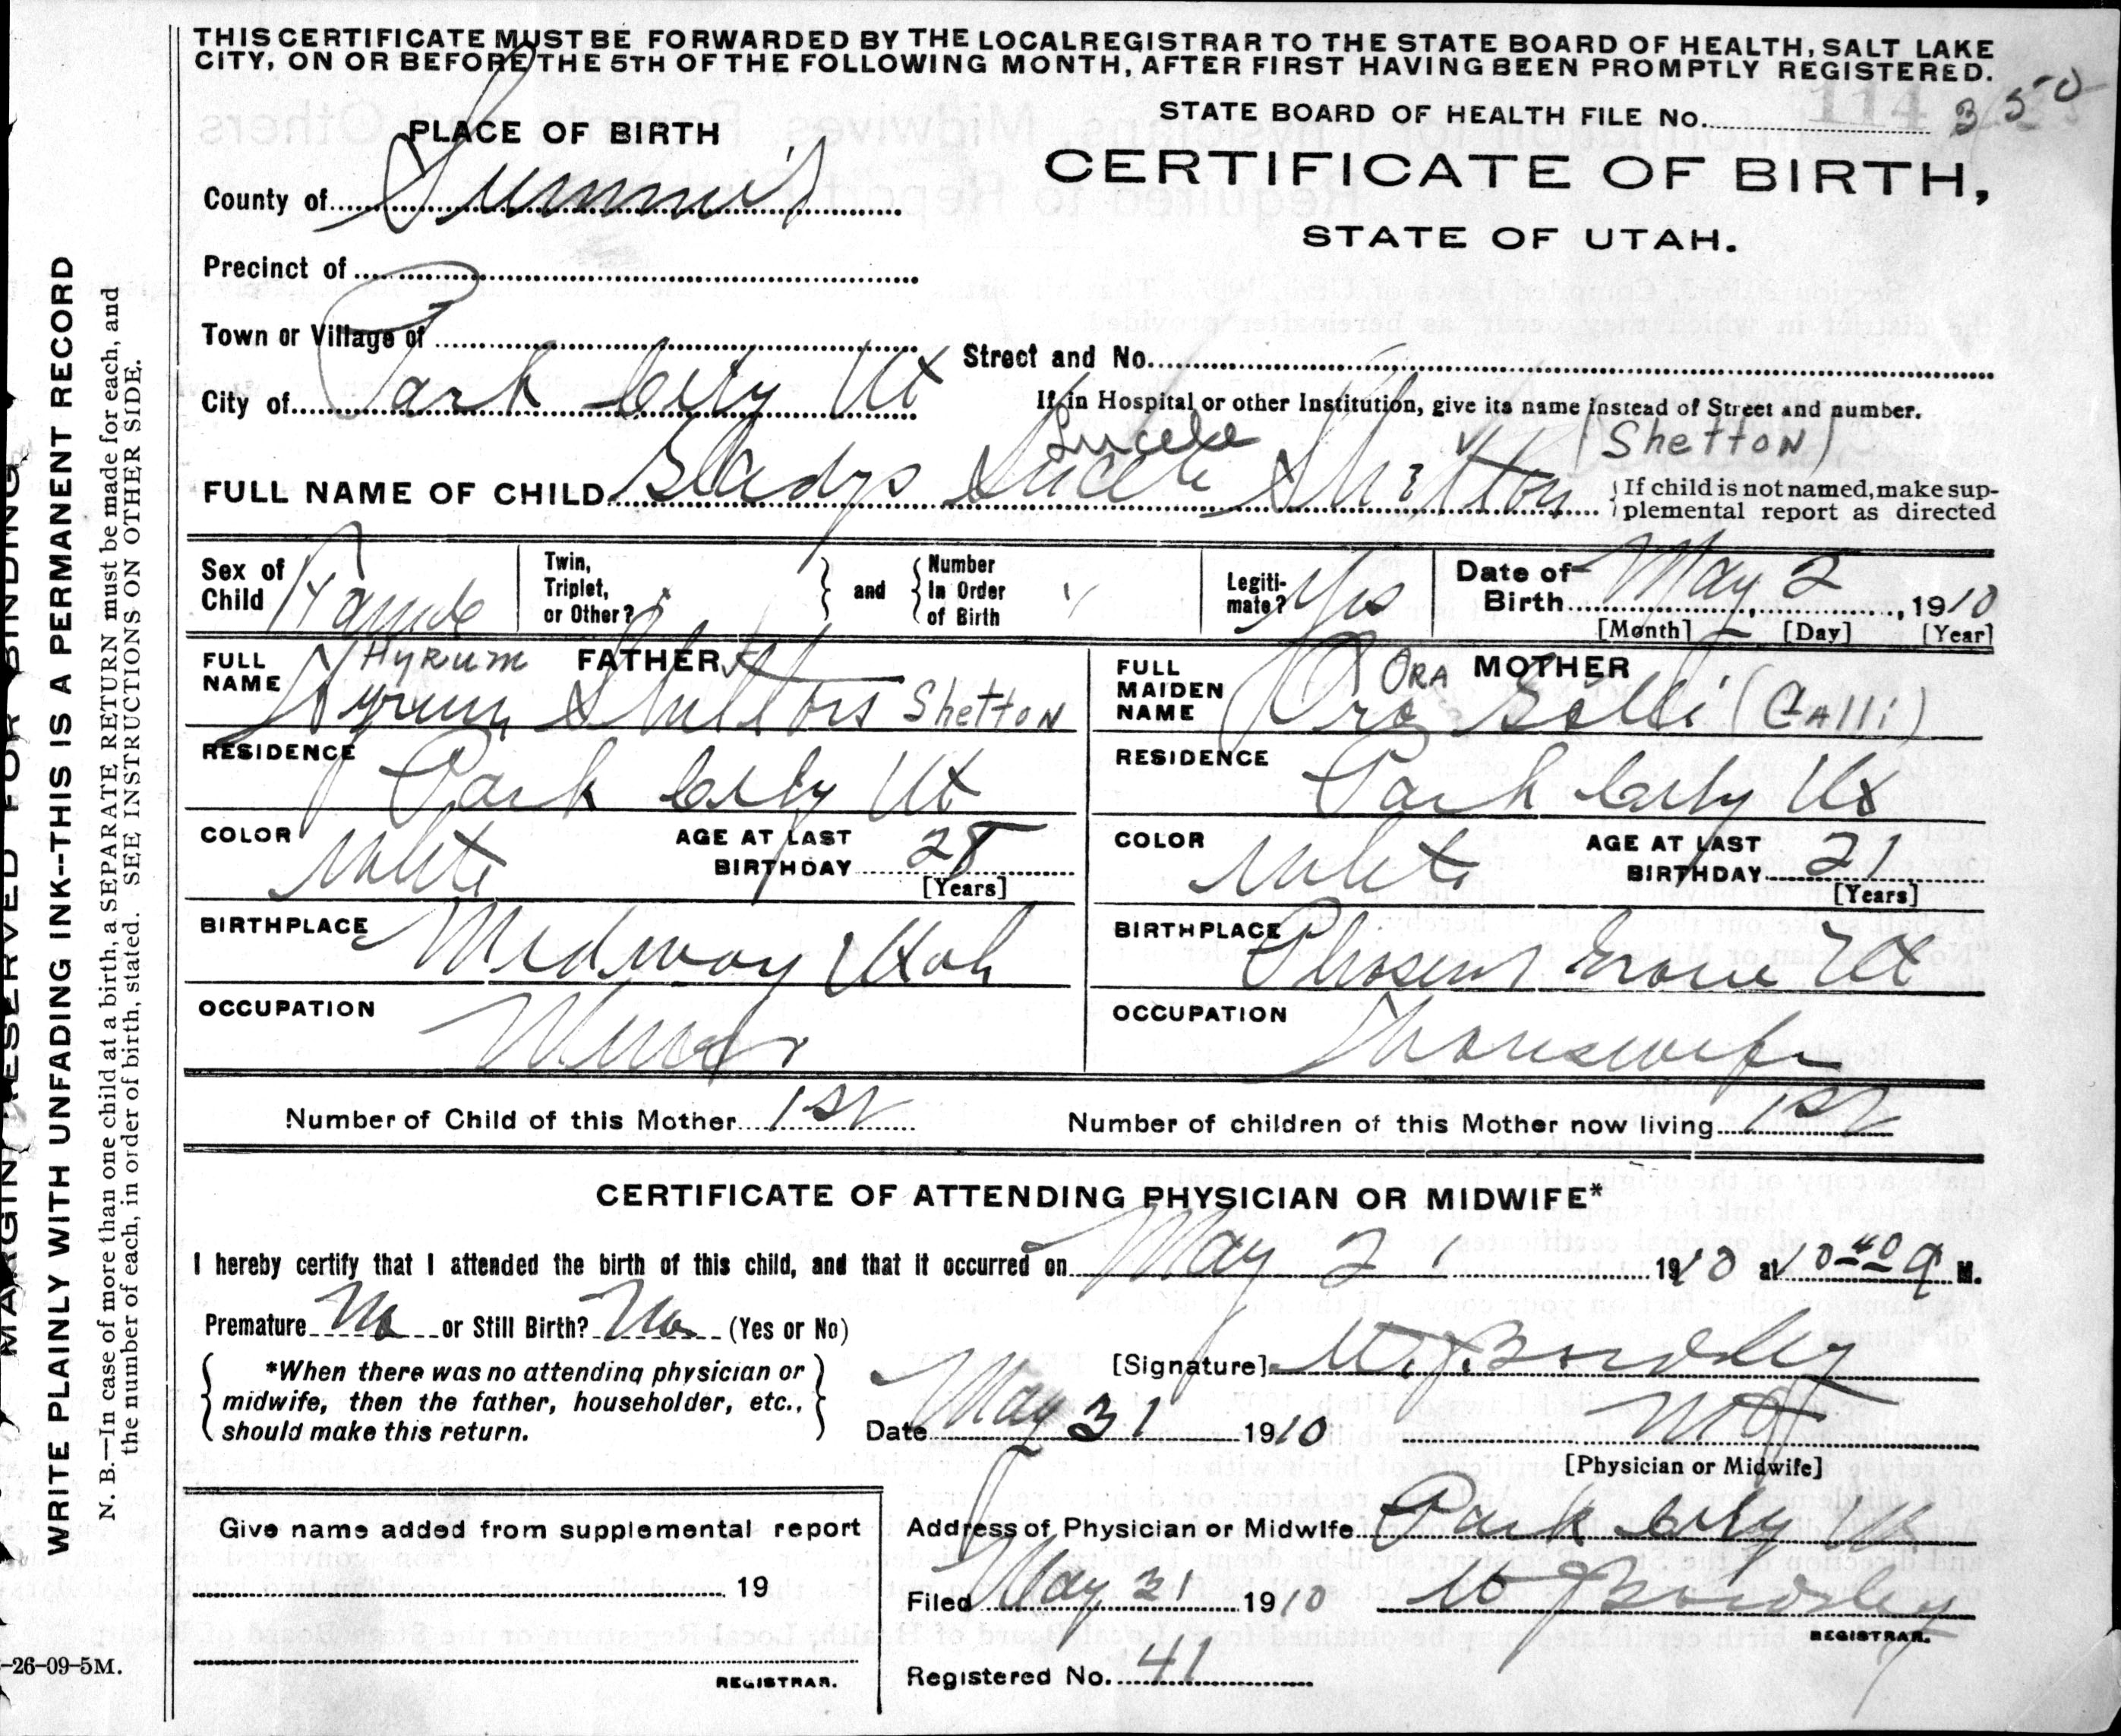 THIS CERTIFICATE MUST BE FORWARDED BY THE LOCAL REGISTRAR TO THE STATE BOARD OF HEALTH, SALT LAKE
CITY, ON OR BEFORE THE 5TH OF THE FOLLOWING MONTH, AFTER FIRST HAVING BEEN PROMPTLY REGISTERED.
STATE BOARD OF HEALTH FILE No. 114 350
PLACE OF BIRTH
CERTIFICATE OF BIRTH,
STATE OF UTAH.
County of Summit
Precinct of
Town or Village of
Street and No.
City of Park City Ut
If in Hospital or other Institution, give its name instead of Street and number.
Lucele (Shetton)
FULL NAME OF CHILD Gladys Lucele Shetton
If child is not named, make sup-
plemental report as directed
Sex of Child Female
Twin, Triplet, or Other? and Number In Order of Birth
Legiti-mate? Yes
Date of Birth May 2, 1910
[Month] [Day] [Year]
FULL NAME FATHER Hyrum
Hyrum Shetton Shetton
FULL MAIDEN NAME MOTHER Ora
Ora Galli (Galli)
RESIDENCE Park City Ut
RESIDENCE Park City Ut
COLOR White AGE AT LAST BIRTHDAY 28 [Years]
COLOR White AGE AT LAST BIRTHDAY 21 [Years]
BIRTHPLACE Midway Utah
BIRTHPLACE Grove Ut
OCCUPATION Miner
OCCUPATION Housewife
Number of Child of this Mother 1st
Number of children of this Mother now living 1st
CERTIFICATE OF ATTENDING PHYSICIAN OR MIDWIFE*
I hereby certify that I attended the birth of this child, and that it occurred on May 2 1910 at 10 40 a M.
Premature No or Still Birth? No (Yes or No)
*When there was no attending physician or
midwife, then the father, householder, etc.,
should make this return.
[Signature]
Date May 31 1910
MD
[Physician or Midwife]
Give name added from supplemental report
19
REGISTRAR.
Address of Physician or Midwife Park City Ut
Filed May 31 1910
REGISTRAR.
Registered No. 41
MARGIN RESERVED FOR BINDING
WRITE PLAINLY WITH UNFADING INK--THIS IS A PERMANENT RECORD
N. B.—In case of more than one child at a birth, a SEPARATE RETURN must be made for each, and
the number of each, in order of birth, stated. SEE INSTRUCTIONS ON OTHER SIDE.
-26-09-5M.